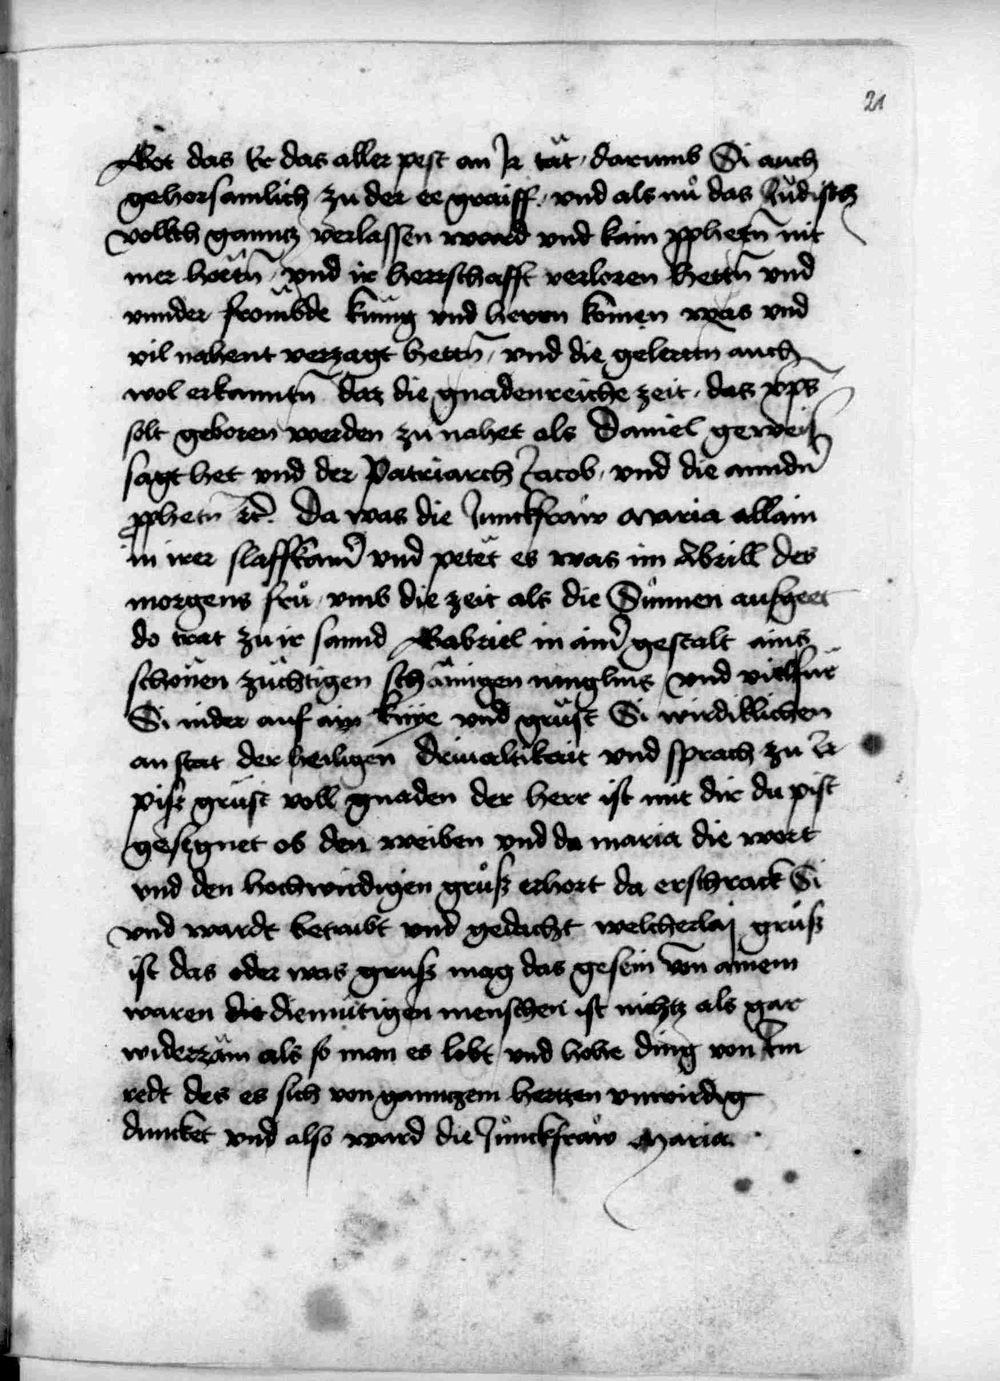 21
Got das Er das aller pest an Ir tät / darumb Si auch
gehorsamlich zu der ee graiff / vnd als nů das Jüdisch
vollkch ganntz verlassen ward vnd kain pphetñ nit
mer hoëtñ / vnd ir herrschafft verloren hettñ vnd
vnnder frömbde künig vnd herrn komen was vnd
vil nahent verzagt hettñ / vnd die gelertn auch
wol erkanntñ daz die gnadenreiche zeit / das xp̄s
solt geboren werden zu nahet als Daniel geweis
sagt het vnd der Patriarch Jacob / vnd die anndñ
pphetn ꝛc. Da was die Junckfraw Maria allain
in irer slaffkam̄ vnd petet es was im Abrill des
morgens frů / vmb die zeit als die Sůnnen aufgeet
do trat zu ir sannd Gabriel in ainr̄ gestalt ains
schönen züchtigen schämigen iunglings vnd viel für
Si nider auf ain knye vnd grüst Si wirdiklichen
an stat der heiligen Driualtikait vnd sprach zu Ir
pist grüst voll gnaden der herr ist mit dir du pist
gesegnet ob den weiben vnd da maria die wort
vnd den hochwirdigen grůß erhort da erschrack Si
vnd wardt betrubt vnd gedacht welcherlaj grůß
ist das oder was gruß mag das gesein Von ainem
waren die diemütigen menschen ist nichtz als gar
widerzäm als so man es lobt vnd hohe ding von Im
redt des es sich von ganntzem hertzen vnwirdig
duncket vnd also ward die Jůnckfraw Maria.